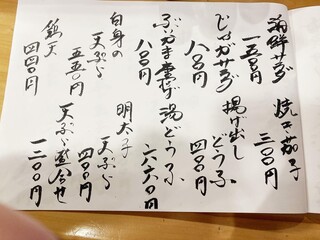 海鮮サラダ
一五〇〇円
焼き茄子
三〇〇円
じゃがサラダ
八〇〇円
揚げ出しどうふ
四〇〇円
八〇〇円
湯どうふ
六〇円
白身の天ぷら
五五〇円
明太子天ぷら
四〇〇円
鶏天
四四〇円
天ぷら盛合せ
一二〇〇円